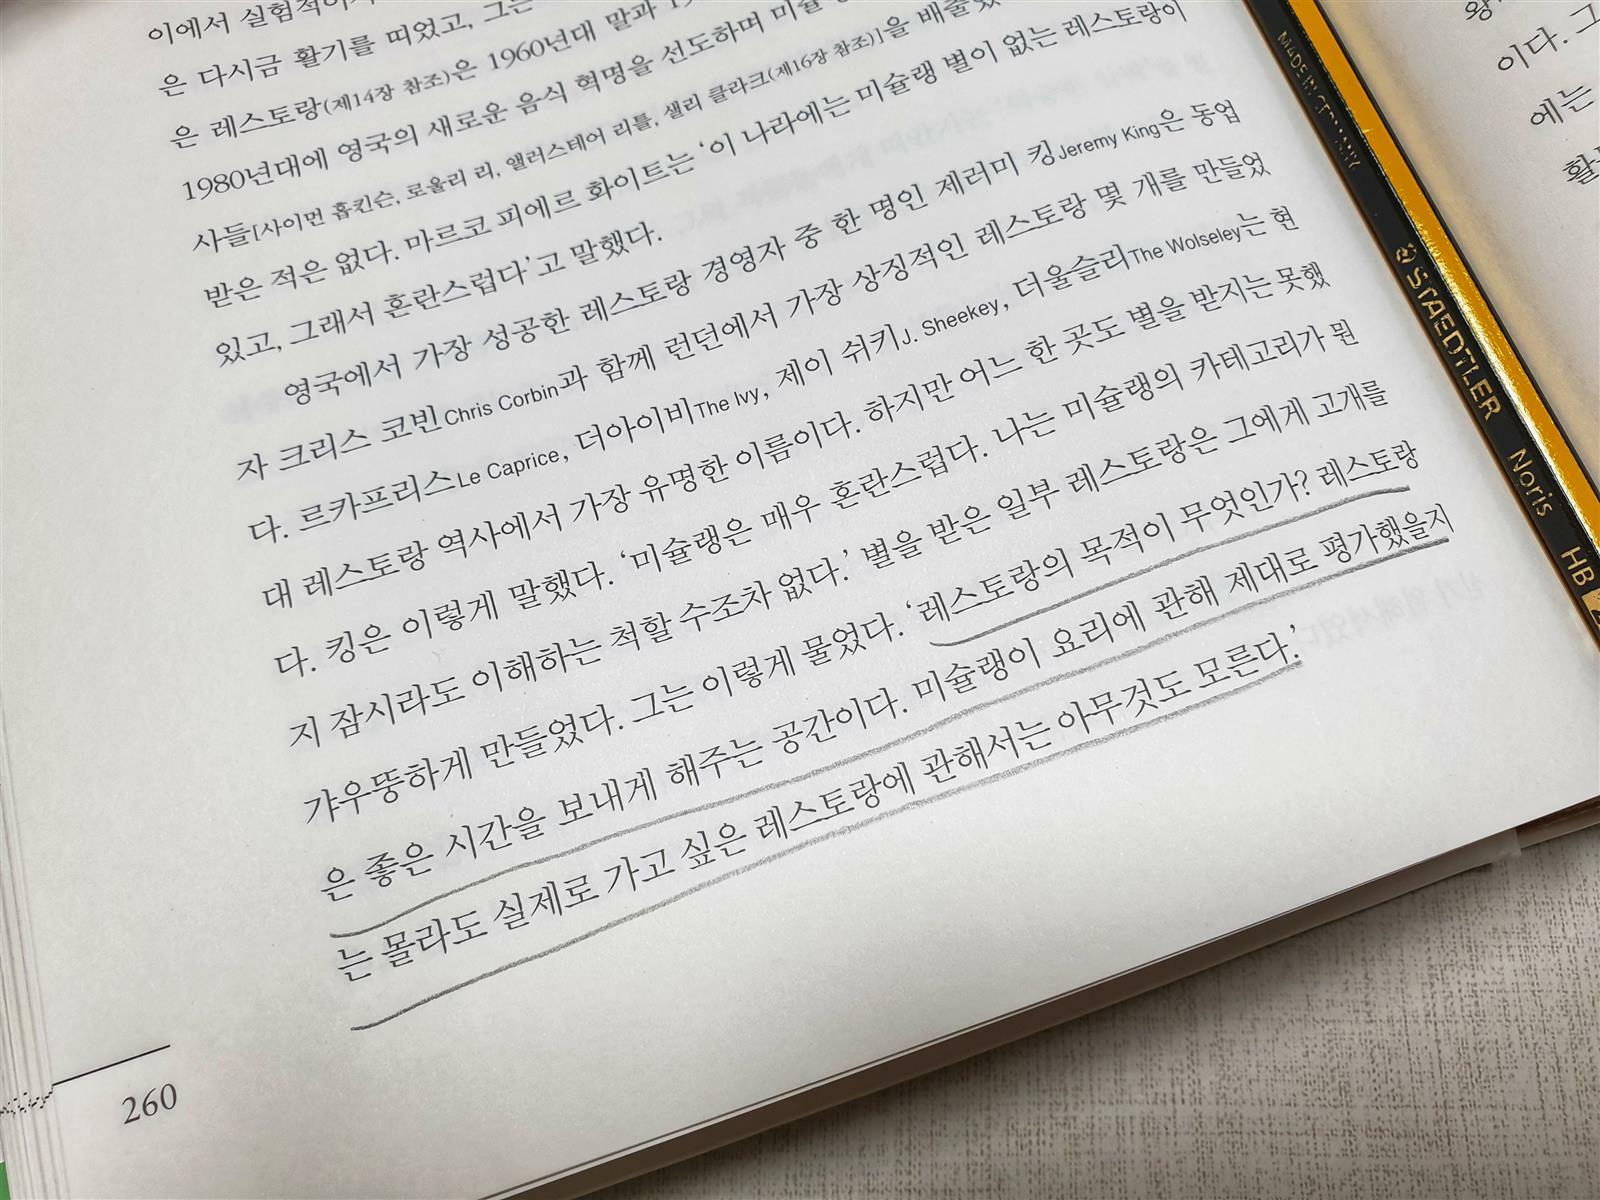 이에서 실험적이
은 다시금 활기를 띠었고, 그는
은 레스토랑(제14장 참조)은 1960년대 말과
1980년대에 영국의 새로운 음식 혁명을 선도하며 미슐랭
사들[사이먼 홉킨슨, 로울리 리, 앨러스테어 리틀, 샐리 클라크(제16장 참조)]을 배출했
받은 적은 없다. 마르코 피에르 화이트는 ‘이 나라에는 미슐랭 별이 없는 레스토랑이
있고, 그래서 혼란스럽다’고 말했다.
영국에서 가장 성공한 레스토랑 경영자 중 한 명인 제러미 킹Jeremy King은 동업
자 크리스 코빈Chris Corbin과 함께 런던에서 가장 상징적인 레스토랑 몇 개를 만들었
다. 르카프리스Le Caprice, 더아이비The Ivy, 제이 쉬키J. Sheekey, 더울슬리The Wolseley는 현
대 레스토랑 역사에서 가장 유명한 이름이다. 하지만 어느 한 곳도 별을 받지는 못했
다. 킹은 이렇게 말했다. ‘미슐랭은 매우 혼란스럽다. 나는 미슐랭의 카테고리가 뭔
지 잠시라도 이해하는 척할 수조차 없다.’ 별을 받은 일부 레스토랑은 그에게 고개를
갸우뚱하게 만들었다. 그는 이렇게 물었다. ‘레스토랑의 목적이 무엇인가? 레스토랑
은 좋은 시간을 보내게 해주는 공간이다. 미슐랭이 요리에 관해 제대로 평가했을지
는 몰라도 실제로 가고 싶은 레스토랑에 관해서는 아무것도 모른다.’
260
이다. 그
에는
활
STAEDTLER Noris HB